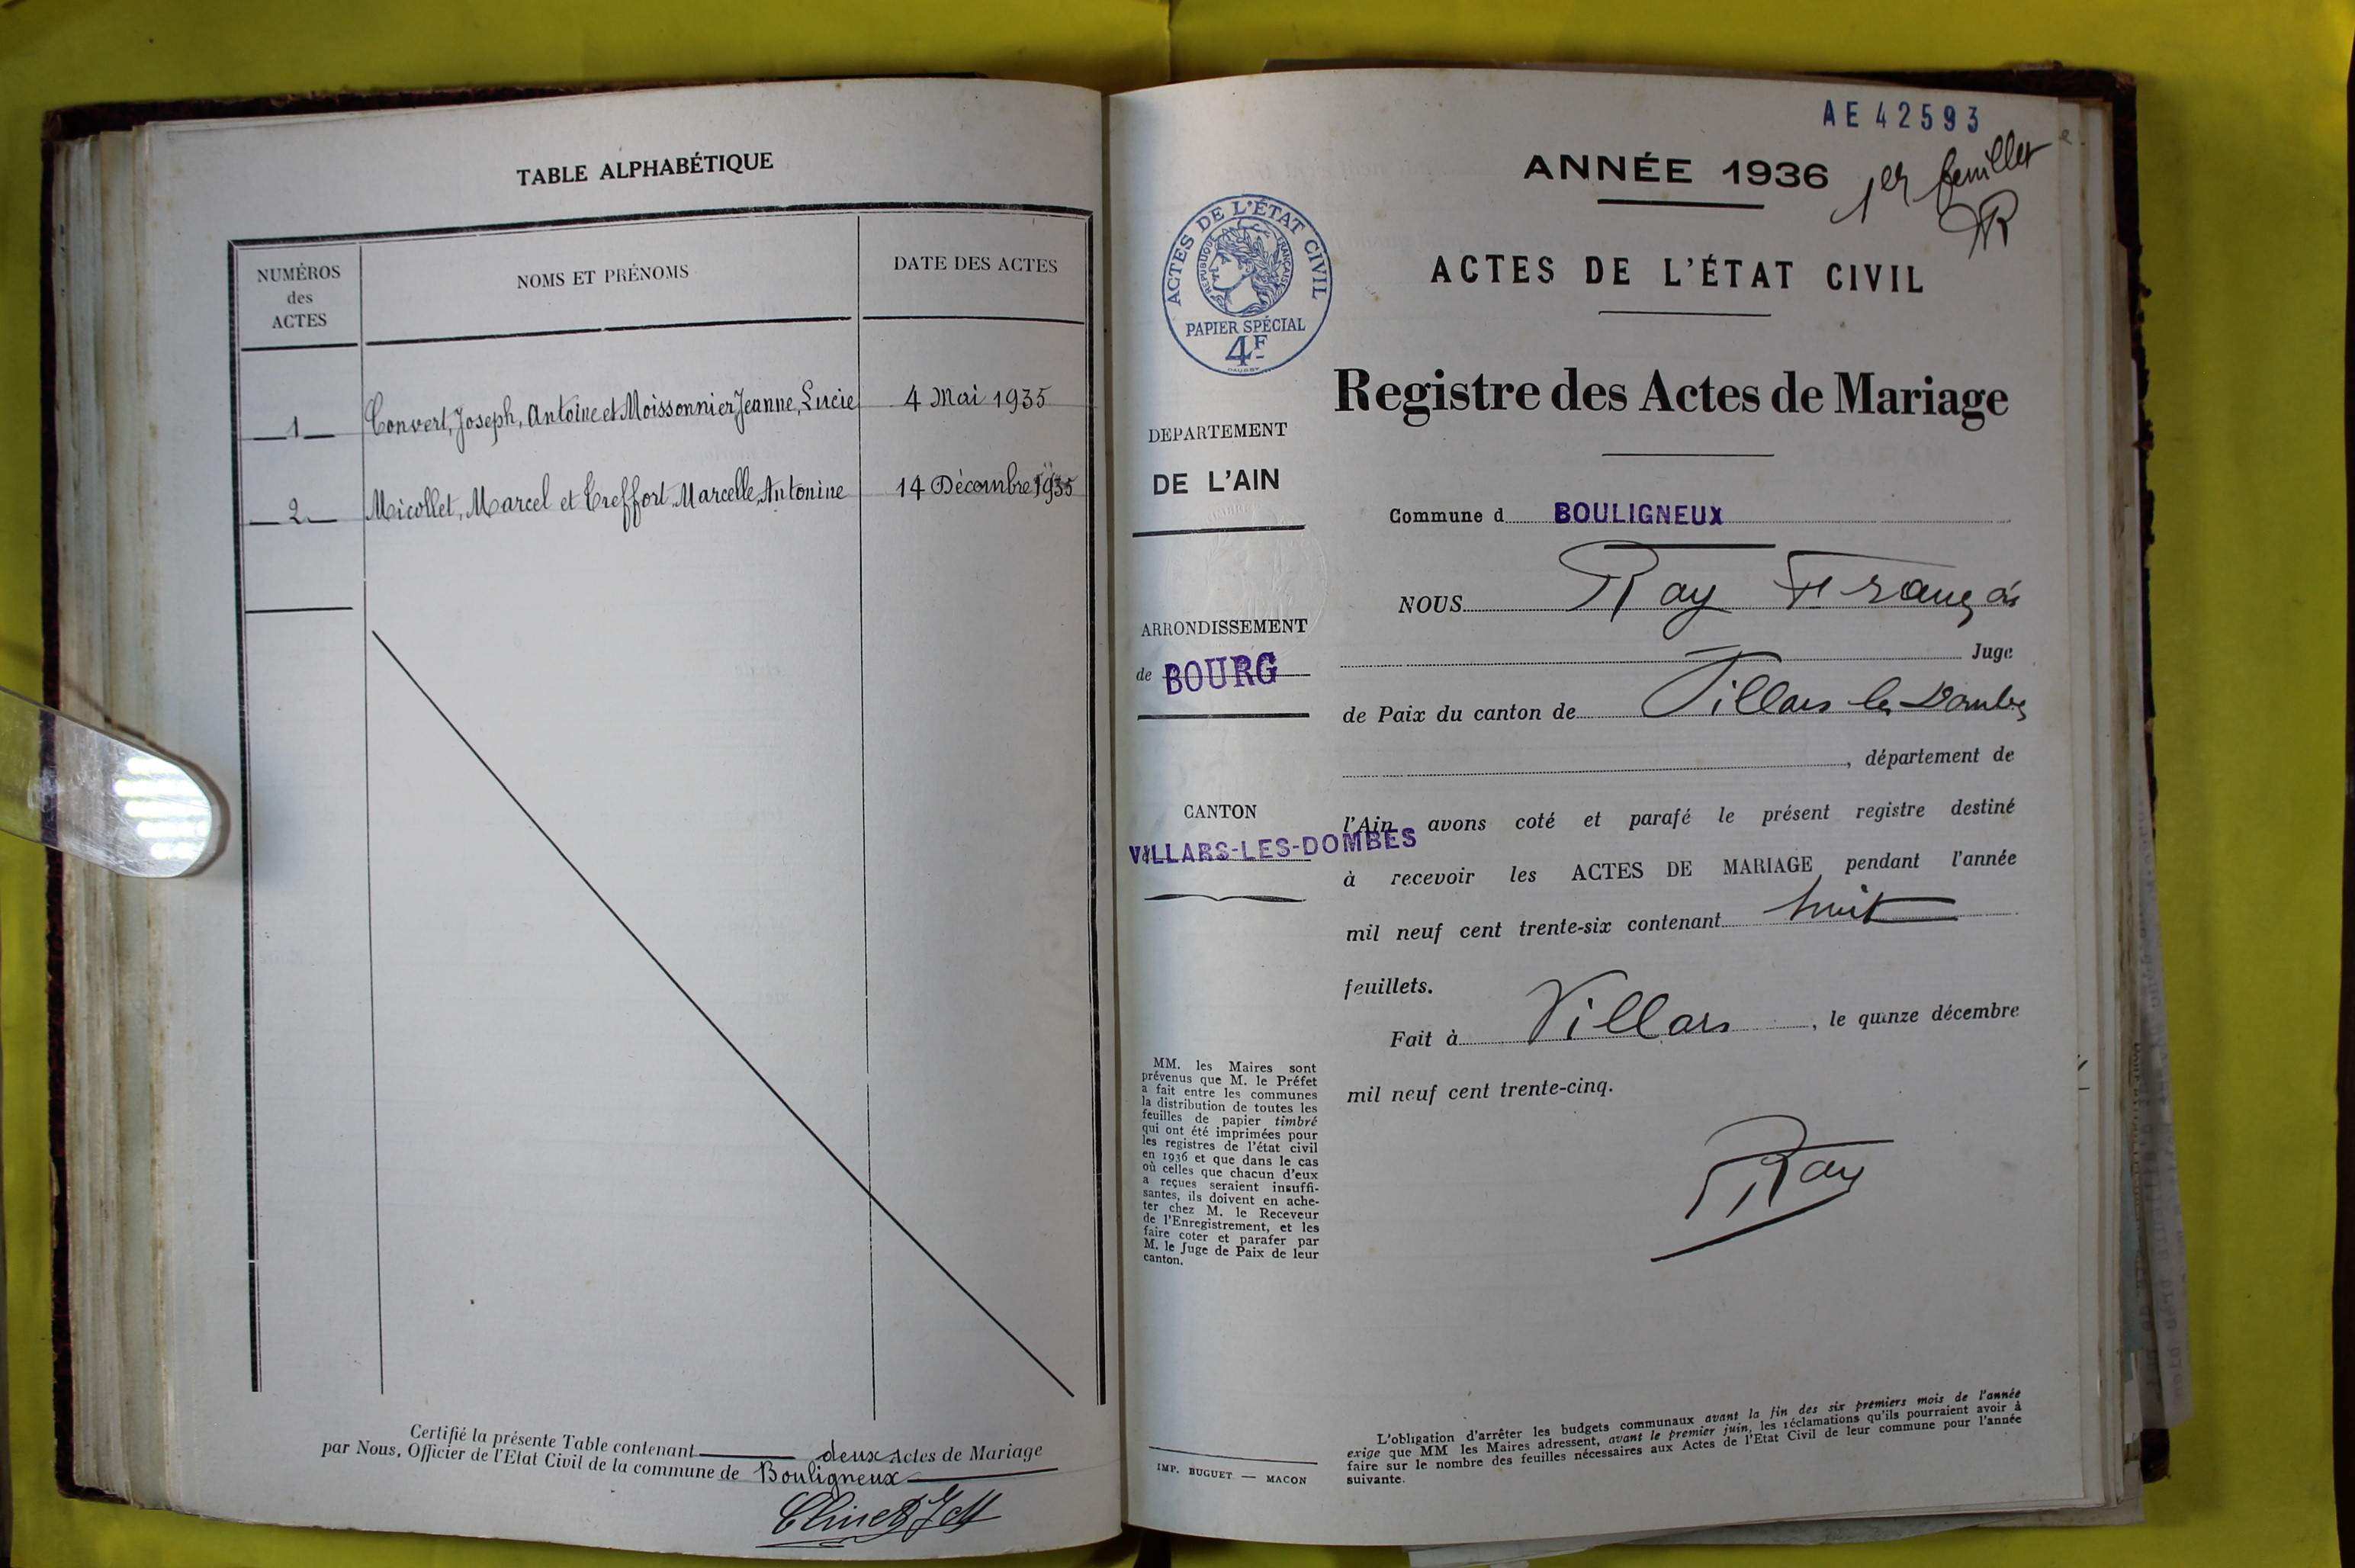 TABLE ALPHABÉTIQUE
NUMÉROS
des
ACTES
NOMS ET PRÉNOMS
DATE DES ACTES
1
Convert, Joseph, Antoine et Moissonnier Jeanne, Lucie
4 Mai 1935
2
Micollet, Marcel et Treffort Marcelle, Antonine
14 Décembre 1935
Certifié la présente Table contenant deux Actes de Mariage
par Nous, Officier de l'Etat Civil de la commune de Bouligneux
AE 42593
ANNÉE 1936
1er feuillet
R
ACTES DE L'ÉTAT CIVIL
RÉPUBLIQUE FRANÇAISE
PAPIER SPÉCIAL
4F
ACTES DE L'ÉTAT CIVIL
Registre des Actes de Mariage
DEPARTEMENT
DE L'AIN
ARRONDISSEMENT
de BOURG
CANTON
VILLARS-LES-DOMBES
MM. les Maires sont
prévenus que M. le Préfet
a fait entre les communes
la distribution de toutes les
feuilles de papier timbré
qui ont été imprimées pour
les registres de l'état civil
en 1936 et que dans le cas
où celles que chacun d'eux
a reçues seraient insuffi-
santes, ils doivent en ache-
ter chez M. le Receveur
de l'Enregistrement, et les
faire coter et parafer par
M. le Juge de Paix de leur
canton.
IMP. BUGUET — MACON
Commune d BOULIGNEUX
NOUS Ray François
Juge
de Paix du canton de Villars les Dombes
, département de
l'Ain avons coté et parafé le présent registre destiné
à recevoir les ACTES DE MARIAGE pendant l'année
mil neuf cent trente-six contenant huit
feuillets.
Fait à Villars, le quinze décembre
mil neuf cent trente-cinq.
Ray
L'obligation d'arrêter les budgets communaux avant la fin des six premiers mois de l'année
exige que MM les Maires adressent, avant le premier juin, les réclamations qu'ils pourraient avoir à
faire sur le nombre des feuilles nécessaires aux Actes de l'Etat Civil de leur commune pour l'année
suivante.